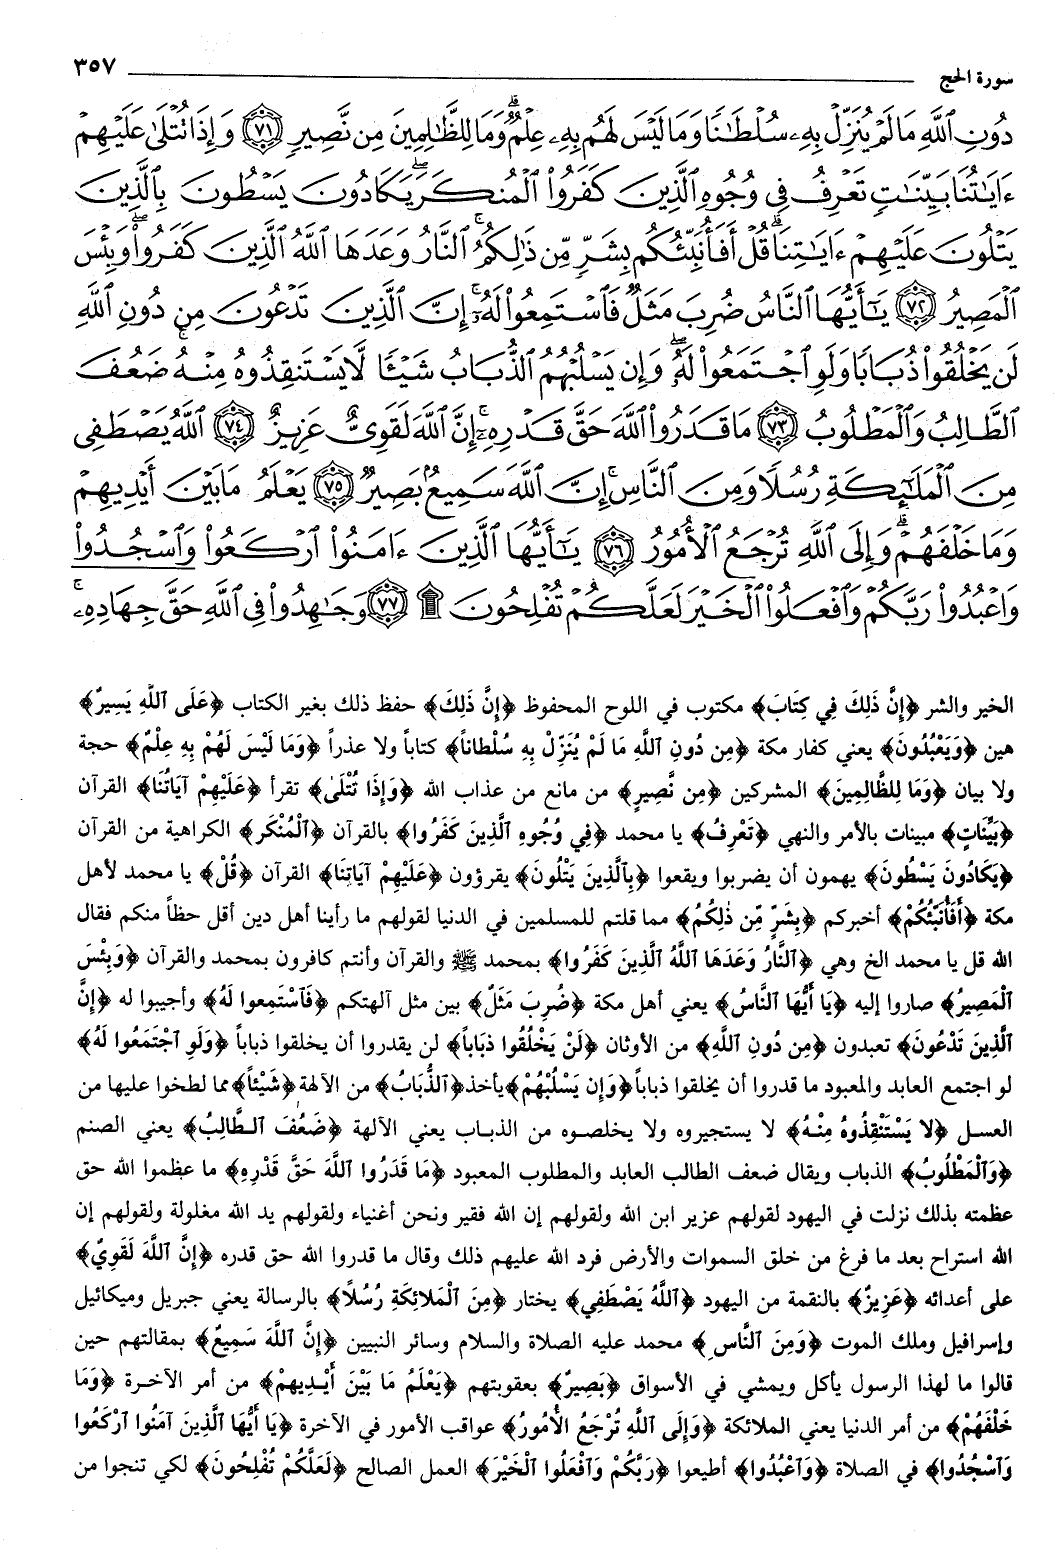 سورة الحج ٣٥٧
دُونِ ٱللَّهِ مَا لَمْ يُنَزِّلْ بِهِۦ سُلْطَٰنًا وَمَا لَيْسَ لَهُم بِهِۦ عِلْمٌۗ وَمَا لِلظَّٰلِمِينَ مِن نَّصِيرٍ ٧١ وَإِذَا تُتْلَىٰ عَلَيْهِمْ
ءَايَٰتُنَا بَيِّنَٰتٍ تَعْرِفُ فِى وُجُوهِ ٱلَّذِينَ كَفَرُوا۟ ٱلْمُنكَرَۖ يَكَادُونَ يَسْطُونَ بِٱلَّذِينَ
يَتْلُونَ عَلَيْهِمْ ءَايَٰتِنَاۗ قُلْ أَفَأُنَبِّئُكُم بِشَرٍّ مِّن ذَٰلِكُمُۚ ٱلنَّارُ وَعَدَهَا ٱللَّهُ ٱلَّذِينَ كَفَرُوا۟ۖ وَبِئْسَ
ٱلْمَصِيرُ ٧٢ يَٰٓأَيُّهَا ٱلنَّاسُ ضُرِبَ مَثَلٌ فَٱسْتَمِعُوا۟ لَهُۥٓۚ إِنَّ ٱلَّذِينَ تَدْعُونَ مِن دُونِ ٱللَّهِ
لَن يَخْلُقُوا۟ ذُبَابًا وَلَوِ ٱجْتَمَعُوا۟ لَهُۥۖ وَإِن يَسْلُبْهُمُ ٱلذُّبَابُ شَيْـًٔا لَّا يَسْتَنقِذُوهُ مِنْهُۚ ضَعُفَ
ٱلطَّالِبُ وَٱلْمَطْلُوبُ ٧٣ مَا قَدَرُوا۟ ٱللَّهَ حَقَّ قَدْرِهِۦٓۚ إِنَّ ٱللَّهَ لَقَوِىٌّ عَزِيزٌ ٧٤ ٱللَّهُ يَصْطَفِى
مِنَ ٱلْمَلَٰٓئِكَةِ رُسُلًا وَمِنَ ٱلنَّاسِۚ إِنَّ ٱللَّهَ سَمِيعٌۢ بَصِيرٌ ٧٥ يَعْلَمُ مَا بَيْنَ أَيْدِيهِمْ
وَمَا خَلْفَهُمْۗ وَإِلَى ٱللَّهِ تُرْجَعُ ٱلْأُمُورُ ٧٦ يَٰٓأَيُّهَا ٱلَّذِينَ ءَامَنُوا۟ ٱرْكَعُوا۟ وَٱسْجُدُوا۟
وَٱعْبُدُوا۟ رَبَّكُمْ وَٱفْعَلُوا۟ ٱلْخَيْرَ لَعَلَّكُمْ تُفْلِحُونَ ۩ ٧٧ وَجَٰهِدُوا۟ فِى ٱللَّهِ حَقَّ جِهَادِهِۦۚ
الخير والشر ﴿إِنَّ ذَلِكَ فِي كِتَابَ﴾ مكتوب في اللوح المحفوظ ﴿إِنَّ ذَلِكَ﴾ حفظ ذلك بغير الكتاب ﴿عَلَى ٱللَّهِ يَسِيرٌ﴾
هين ﴿وَيَعْبُدُونَ﴾ يعني كفار مكة ﴿مِن دُونِ ٱللَّهِ مَا لَمْ يُنَزِّلْ بِهِ سُلْطاناً﴾ كتاباً ولا عذراً ﴿وَمَا لَيْسَ لَهُمْ بِهِ عِلْمٌ﴾ حجة
ولا بيان ﴿وَمَا لِلظَّالِمِينَ﴾ المشركين ﴿مِن نَّصِيرٍ﴾ من مانع من عذاب الله ﴿وَإِذَا تُتْلَىٰ﴾ تقرأ ﴿عَلَيْهِمْ آيَاتُنَا﴾ القرآن
﴿بَيِّنَاتٍ﴾ مبينات بالأمر والنهي ﴿تَعْرِفُ﴾ يا محمد ﴿فِي وُجُوهِ ٱلَّذِينَ كَفَرُوا﴾ بالقرآن ﴿ٱلْمُنْكَرَ﴾ الكراهية من القرآن
﴿يَكَادُونَ يَسْطُونَ﴾ يهمون أن يضربوا ويقعوا ﴿بِٱلَّذِينَ يَتْلُونَ﴾ يقرؤون ﴿عَلَيْهِمْ آيَاتِنَا﴾ القرآن ﴿قُلْ﴾ يا محمد لأهل
مكة ﴿أَفَأُنَبِّئُكُمْ﴾ أخبركم ﴿بِشَرٍّ مِّن ذَٰلِكُمُ﴾ مما قلتم للمسلمين في الدنيا لقولهم ما رأينا أهل دين أقل حظاً منكم فقال
الله قل يا محمد الخ وهي ﴿ٱلنَّارُ وَعَدَهَا ٱللَّهُ ٱلَّذِينَ كَفَرُوا﴾ بمحمد ﷺ والقرآن وأنتم كافرون بمحمد والقرآن ﴿وَبِئْسَ
ٱلْمَصِيرُ﴾ صاروا إليه ﴿يَا أَيُّهَا ٱلنَّاسُ﴾ يعني أهل مكة ﴿ضُرِبَ مَثَلٌ﴾ بين مثل آلهتكم ﴿فَٱسْتَمِعوا لَهُ﴾ وأجيبوا له ﴿إِنَّ
ٱلَّذِينَ تَدْعُونَ﴾ تعبدون ﴿مِن دُونِ ٱللَّهِ﴾ من الأوثان ﴿لَنْ يَخْلُقُوا ذبَاباً﴾ لن يقدروا أن يخلقوا ذباباً ﴿وَلَوِ ٱجْتَمَعُوا لَهُ﴾
لو اجتمع العابد والمعبود ما قدروا أن يخلقوا ذباباً ﴿وَإِن يَسْلُبْهُمْ﴾ يأخذ ﴿ٱلذُّبَابُ﴾ من الآلهة ﴿شَيْئاً﴾ مما لطخوا عليها من
العسل ﴿لا يَسْتَنْقِذُوهُ مِنْهُ﴾ لا يستجيروه ولا يخلصوه من الذباب يعني الآلهة ﴿ضَعُفَ ٱلطَّالِبُ﴾ يعني الصنم
﴿وَٱلْمَطْلُوبُ﴾ الذباب ويقال ضعف الطالب العابد والمطلوب المعبود ﴿مَا قَدَرُوا ٱللَّهَ حَقَّ قَدْرِهِ﴾ ما عظموا الله حق
عظمته بذلك نزلت في اليهود لقولهم عزير ابن الله ولقولهم إن الله فقير ونحن أغنياء ولقولهم يد الله مغلولة ولقولهم إن
الله استراح بعد ما فرغ من خلق السموات والأرض فرد الله عليهم ذلك وقال ما قدروا الله حق قدره ﴿إِنَّ ٱللَّهَ لَقَوِيٌّ﴾
على أعدائه ﴿عَزِيزٌ﴾ بالنقمة من اليهود ﴿ٱللَّهُ يَصْطَفِي﴾ يختار ﴿مِنَ ٱلْمَلائِكَةِ رُسُلًا﴾ بالرسالة يعني جبريل وميكائيل
وإسرافيل وملك الموت ﴿وَمِنَ ٱلنَّاسِ﴾ محمد عليه الصلاة والسلام وسائر النبيين ﴿إِنَّ ٱللَّهَ سَمِيعٌ﴾ بمقالتهم حين
قالوا ما لهذا الرسول يأكل ويمشي في الأسواق ﴿بَصِيرٌ﴾ بعقوبتهم ﴿يَعْلَمُ مَا بَيْنَ أَيْدِيهِمْ﴾ من أمر الآخرة ﴿وَمَا
خَلْفَهُمْ﴾ من أمر الدنيا يعني الملائكة ﴿وَإِلَى ٱللَّهِ تُرْجَعُ ٱلأُمُورُ﴾ عواقب الأمور في الآخرة ﴿يَا أَيُّهَا ٱلَّذِينَ آمَنُوا ٱرْكَعُوا
وَٱسْجُدُوا﴾ في الصلاة ﴿وَٱعْبُدُوا﴾ أطيعوا ﴿رَبَّكُمْ وَٱفْعَلُوا ٱلْخَيْرَ﴾ العمل الصالح ﴿لَعَلَّكُمْ تُفْلِحُونَ﴾ لكي تنجوا من